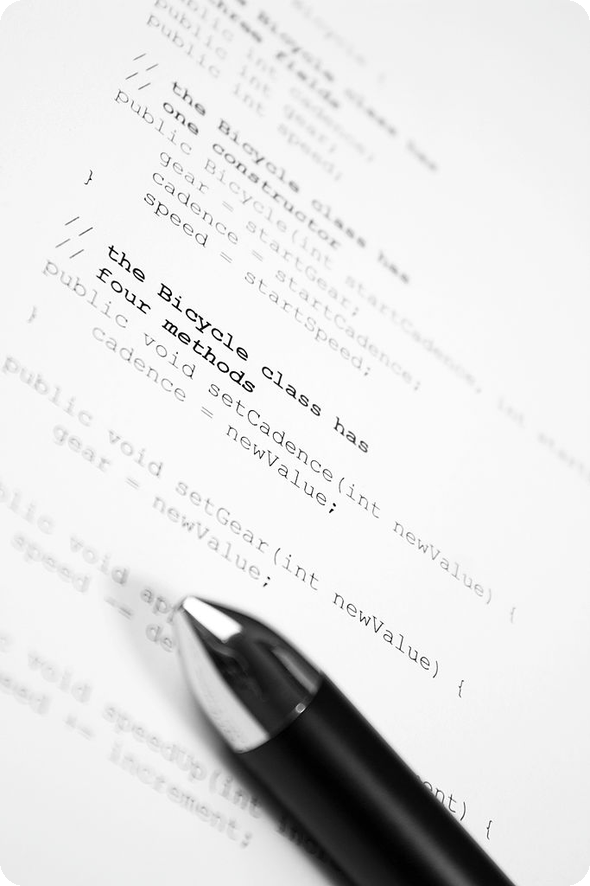 Bicycle {
the Bicycle class has
three fields
public int cadence;
public int gear;
public int speed;
// the Bicycle class has
// one constructor
public Bicycle(int startCadence, int
gear = startGear;
cadence = startCadence;
speed = startSpeed;
}
// the Bicycle class has
// four methods
public void setCadence(int newValue) {
cadence = newValue;
}
public void setGear(int newValue) {
gear = newValue;
void {
speed -=
void speedUp(int
+= increment;